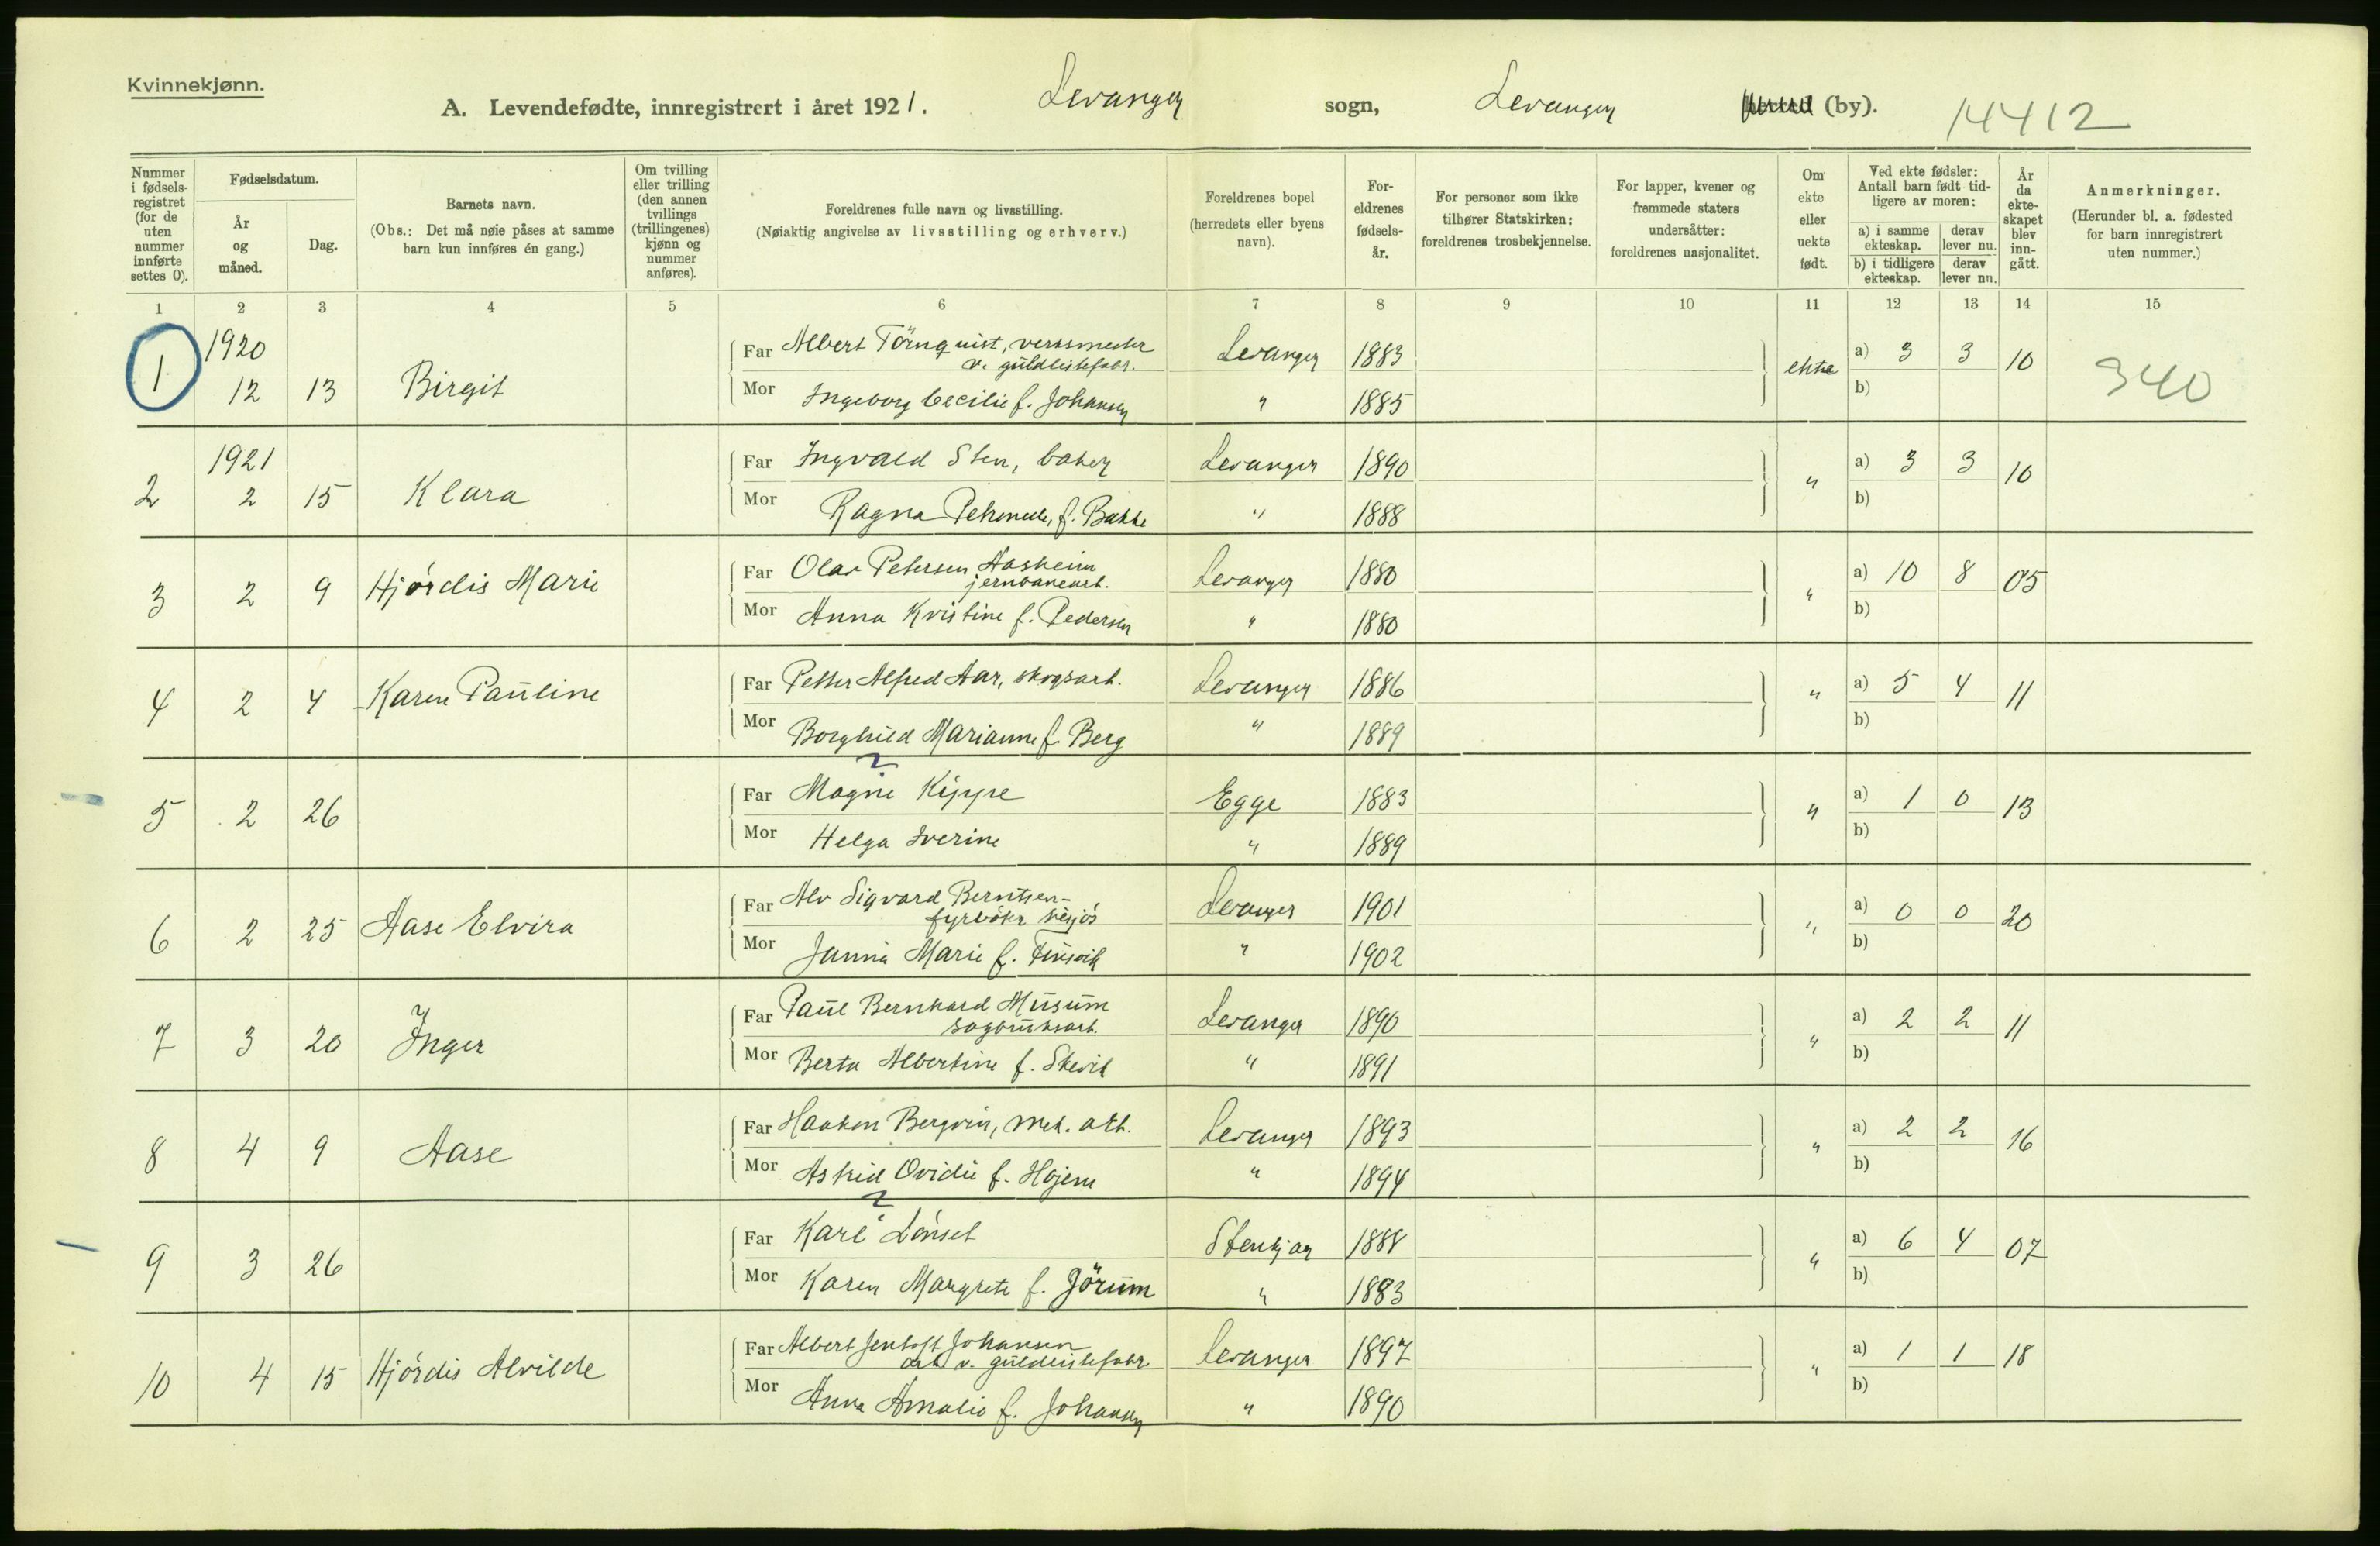 Kvinnekjønn.
A. Levendefødte, innregistrert i året 1921. Levanger sogn, Levanger herred (by). 14412
Nummer i fødsels-registret (for de uten nummer innførte settes 0).
Fødselsdatum.
År og måned.
Dag.
Barnets navn.
(Obs.: Det må nøie påses at samme barn kun innføres én gang.)
Om tvilling eller trilling (den annen tvillings (trillingenes) kjønn og nummer anføres).
Foreldrenes fulle navn og livsstilling.
(Nøiaktig angivelse av livsstilling og erhverv.)
Foreldrenes bopel (herredets eller byens navn).
For-eldrenes fødsels-år.
For personer som ikke tilhører Statskirken: foreldrenes trosbekjennelse.
For lapper, kvener og fremmede staters undersåtter: foreldrenes nasjonalitet.
Om ekte eller uekte født.
Ved ekte fødsler: Antall barn født tid-ligere av moren:
a) i samme ekteskap.
derav lever nu.
b) i tidligere ekteskap.
derav lever nu.
År da ekte-skapet blev inn-gått.
Anmerkninger.
(Herunder bl. a. fødested for barn innregistrert uten nummer.)
1 2 3 4 5 6 7 8 9 10 11 12 13 14 15
1 1920 12 13 Birgit
Far Albert Törnquist, verksmester v. guldlistefabr. Levanger 1883 ekte a) 3 3 10 340
Mor Ingeborg Cecilie f. Johansen " 1885 b)
2 1921 2 15 Klara
Far Ingvald Sten, baker Levanger 1890 " a) 3 3 10
Mor Ragna f. Bakke " 1888 b)
3 2 9 Hjördis Marie
Far Olav Petersen Aasheim jernbanearb. Levanger 1880 " a) 10 8 05
Mor Anna Kristine f. Pedersen " 1880 b)
4 2 4 Karen Pauline
Far Petter Alfred Aar, skogsarb. Levanger 1886 " a) 5 4 11
Mor Borghild Marianne f. Berg " 1889 b)
5 2 26
Far Magne Kippe Egge 1883 " a) 1 0 13
Mor Helga Iverine " 1889 b)
6 2 25 Aase Elvira
Far Alv Sigvard Berntsen fyrböter Levanger 1901 " a) 0 0 20
Mor Janna Marie f. " 1902 b)
7 3 20 Inger
Far Paul Bernhard Musum sagbruksarb. Levanger 1890 " a) 2 2 11
Mor Berta Albertine f. " 1891 b)
8 4 9 Aase
Far Haakon Bergvin, mek. arb. Levanger 1893 " a) 2 2 16
Mor Astrid Ovidie f. Hojem " 1894 b)
9 3 26
Far Karl Lönset Stenkjær 1888 " a) 6 4 07
Mor Karen Margrete f. Jörum " 1883 b)
10 4 15 Hjördis Alvilde
Far Albert Jentoft Johansen arb. v. guldlistefabr. Levanger 1897 " a) 1 1 18
Mor Anna Amalie f. Johansen " 1890 b)